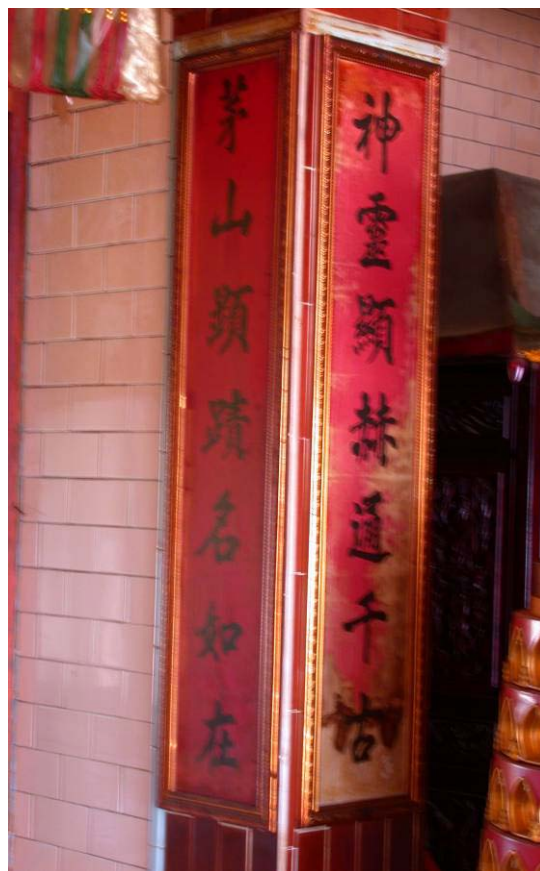 神靈顯赫通千古
茅山顯蹟名如在